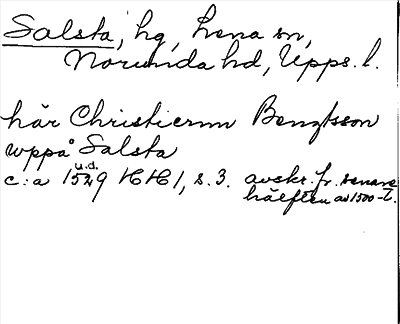 Salsta, hg, Lena sn,
Norunda hd, Upps. l.
här Christiernn Bengtsson
uppå Salsta
u.d.
c:a 1529 HH 1, s. 3. avskr. fr. senare
hälften av 1500-t.